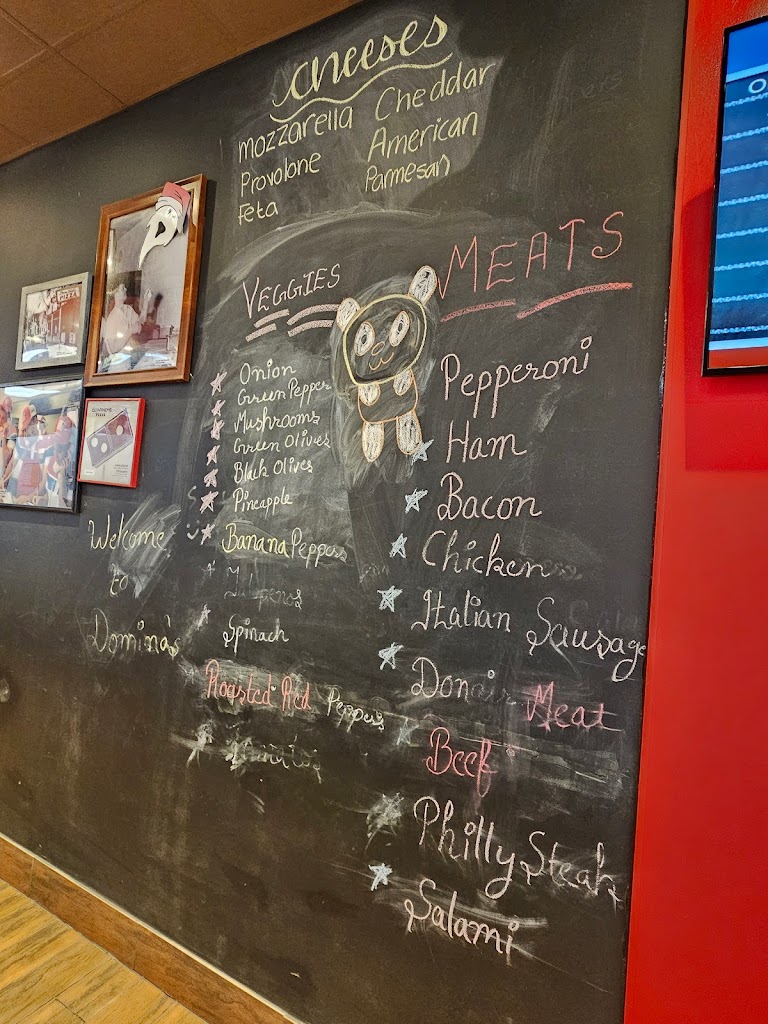 Cheeses
Mozzarella Cheddar
Provolone American
Feta Parmesan
VEGGIES
Onion
Green Pepper
Mushrooms
Green Olives
Black Olives
Pineapple
Banana Peppers
Spinach
Roasted Red Peppers
MEATS
Pepperoni
Ham
Bacon
Chicken
Italian Sausage
Donair Meat
Beef
Philly Steak
Salami
Welcome
to
Domino's